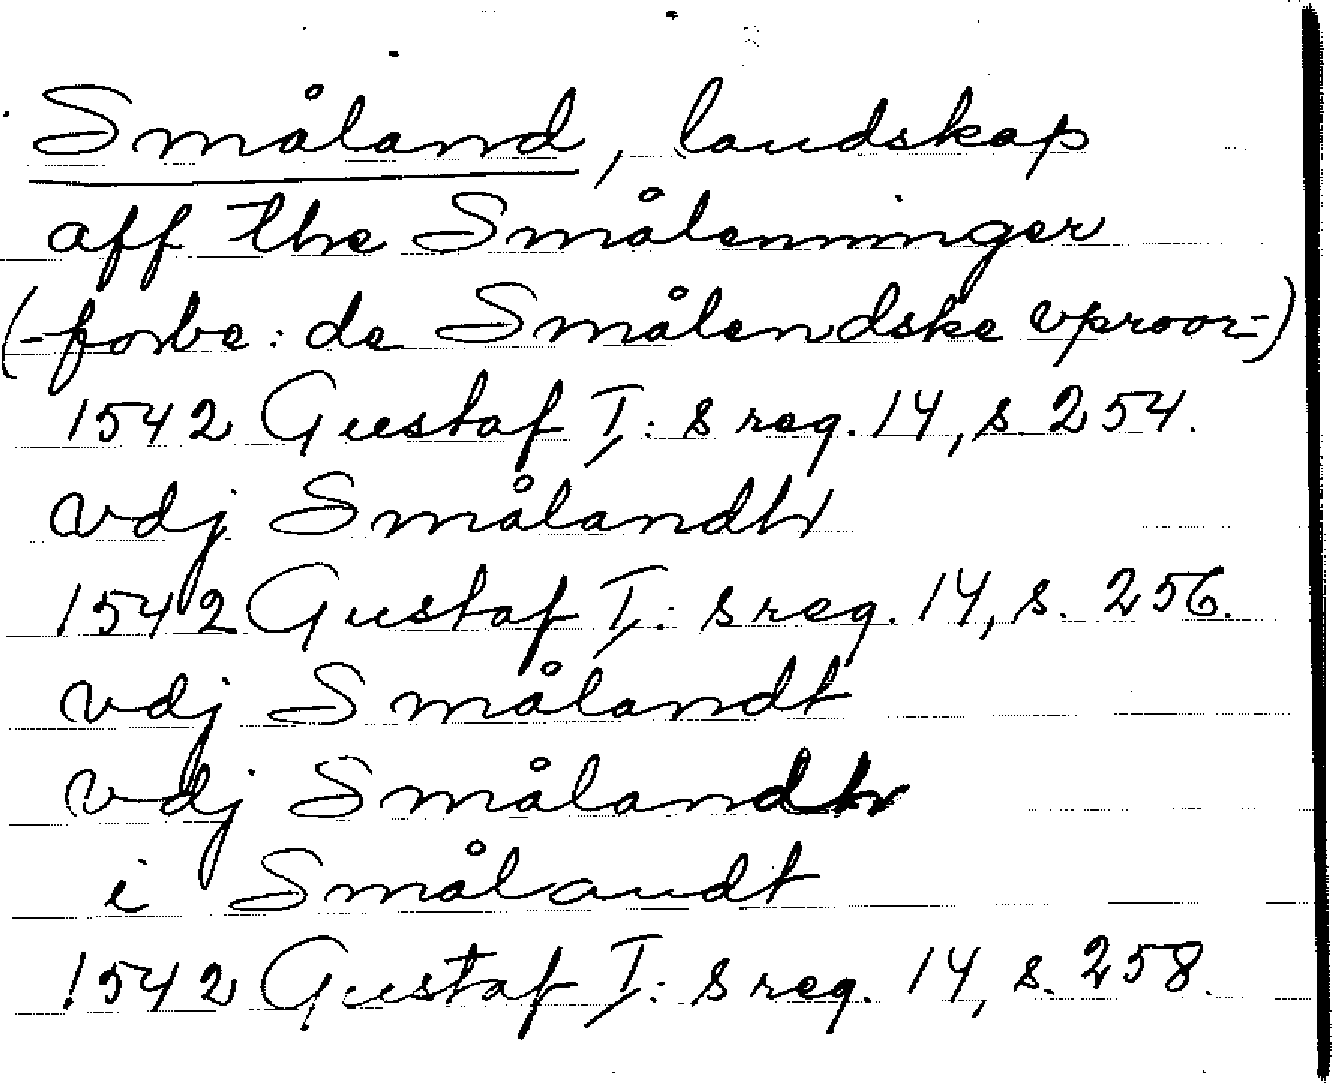 Småland, landskap
aff the Smålenninger
(-forbe: de Smålendske vproor-)
1542 Gustaf I: s reg. 14, s. 254.
vdj Smålandh
1542 Gustaf I: s reg. 14, s. 256.
vdj Smålandt
vdj Smålandh
i Smålandt
1542 Gustaf I: s reg. 14, s. 258.